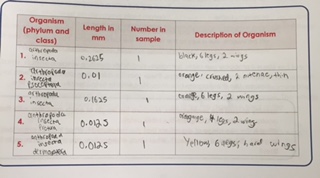 Organism (phylum and class) Length in mm Number in sample Description of Organism
1. arthropoda insecta 0.2625 1 black, 6 legs, 2 wings
2. arthropoda insecta 0.01 1 orange, thin
3. arthropoda insecta 0.1625 1 6 legs, 2 wings
4. arthropoda insecta 0.0125 1 legs, 2 wing
5. arthropoda insecta 0.0125 1 Yellow, 6 legs, hard wings